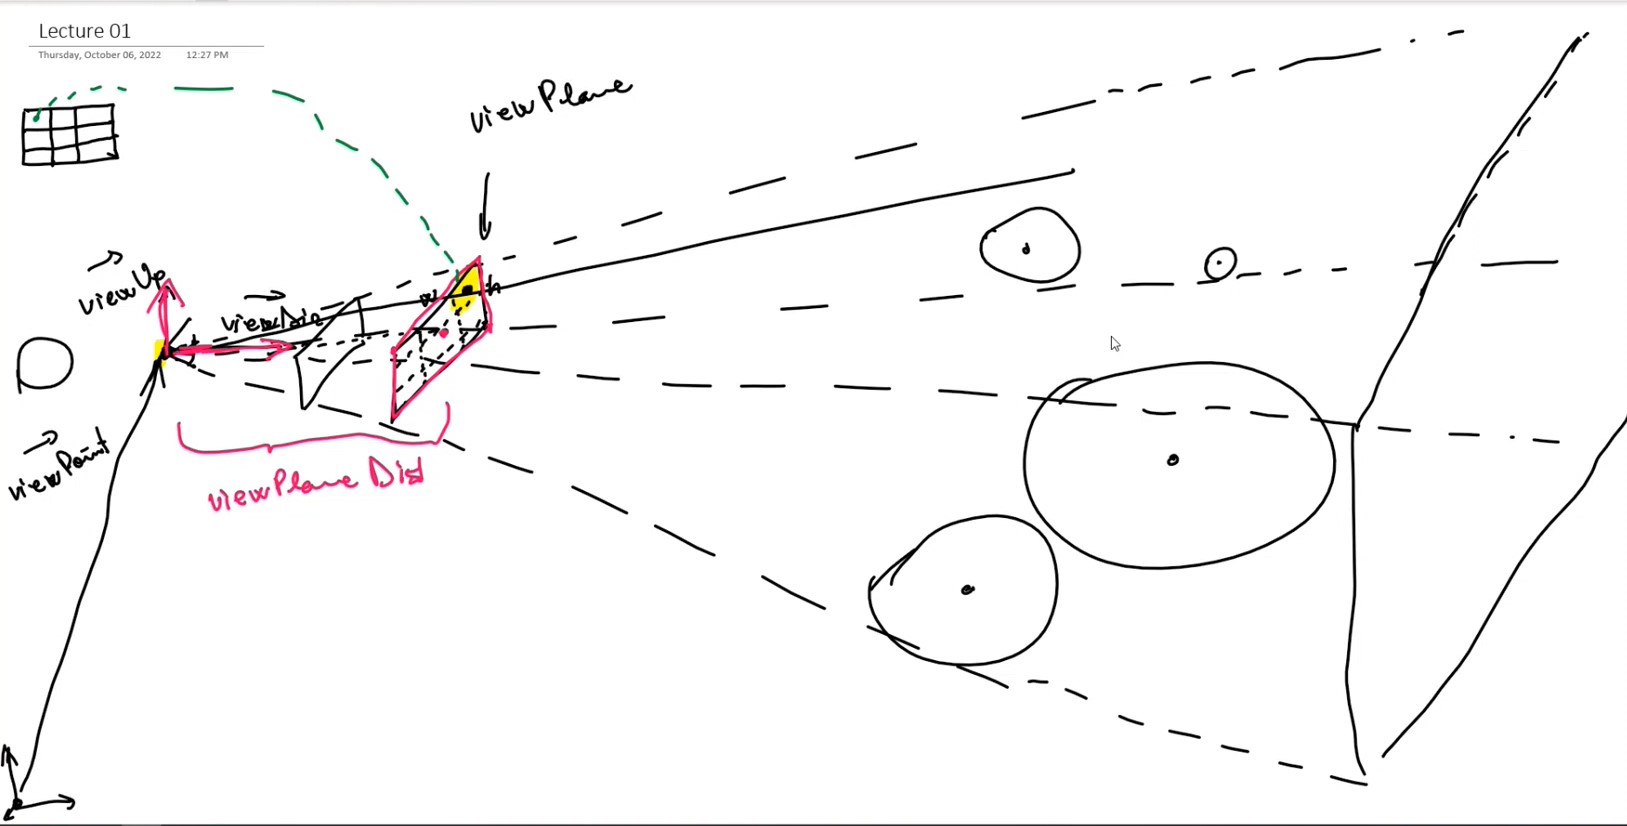 Lecture 01
Thursday, October 06, 2022 12:27 PM
viewPlane
viewUp
viewDir
w
h
viewPoint
viewPlane Dist